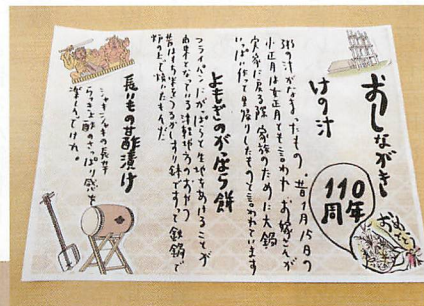 おしながき
110周年
おめでとう
けの汁
粥の汁がなまったもの。昔1月15日の
小正月は女正月とも言われ お嫁さんが
実家に戻る際 家族のために大鍋
いっぱい作って里帰りしたものと言われています
よもぎのがっぱら餅
フライパンにがぱらと生地をあけることが
由来となっている津軽地方のおやつ
昔はくるみをつるがすり鉢ですって鉄鍋で
炉の上で焼いたもんだ
長いもの甘酢漬け
シャキシャキの長芋
らっきょ酢のさっぱり感を
楽しんでけれ。